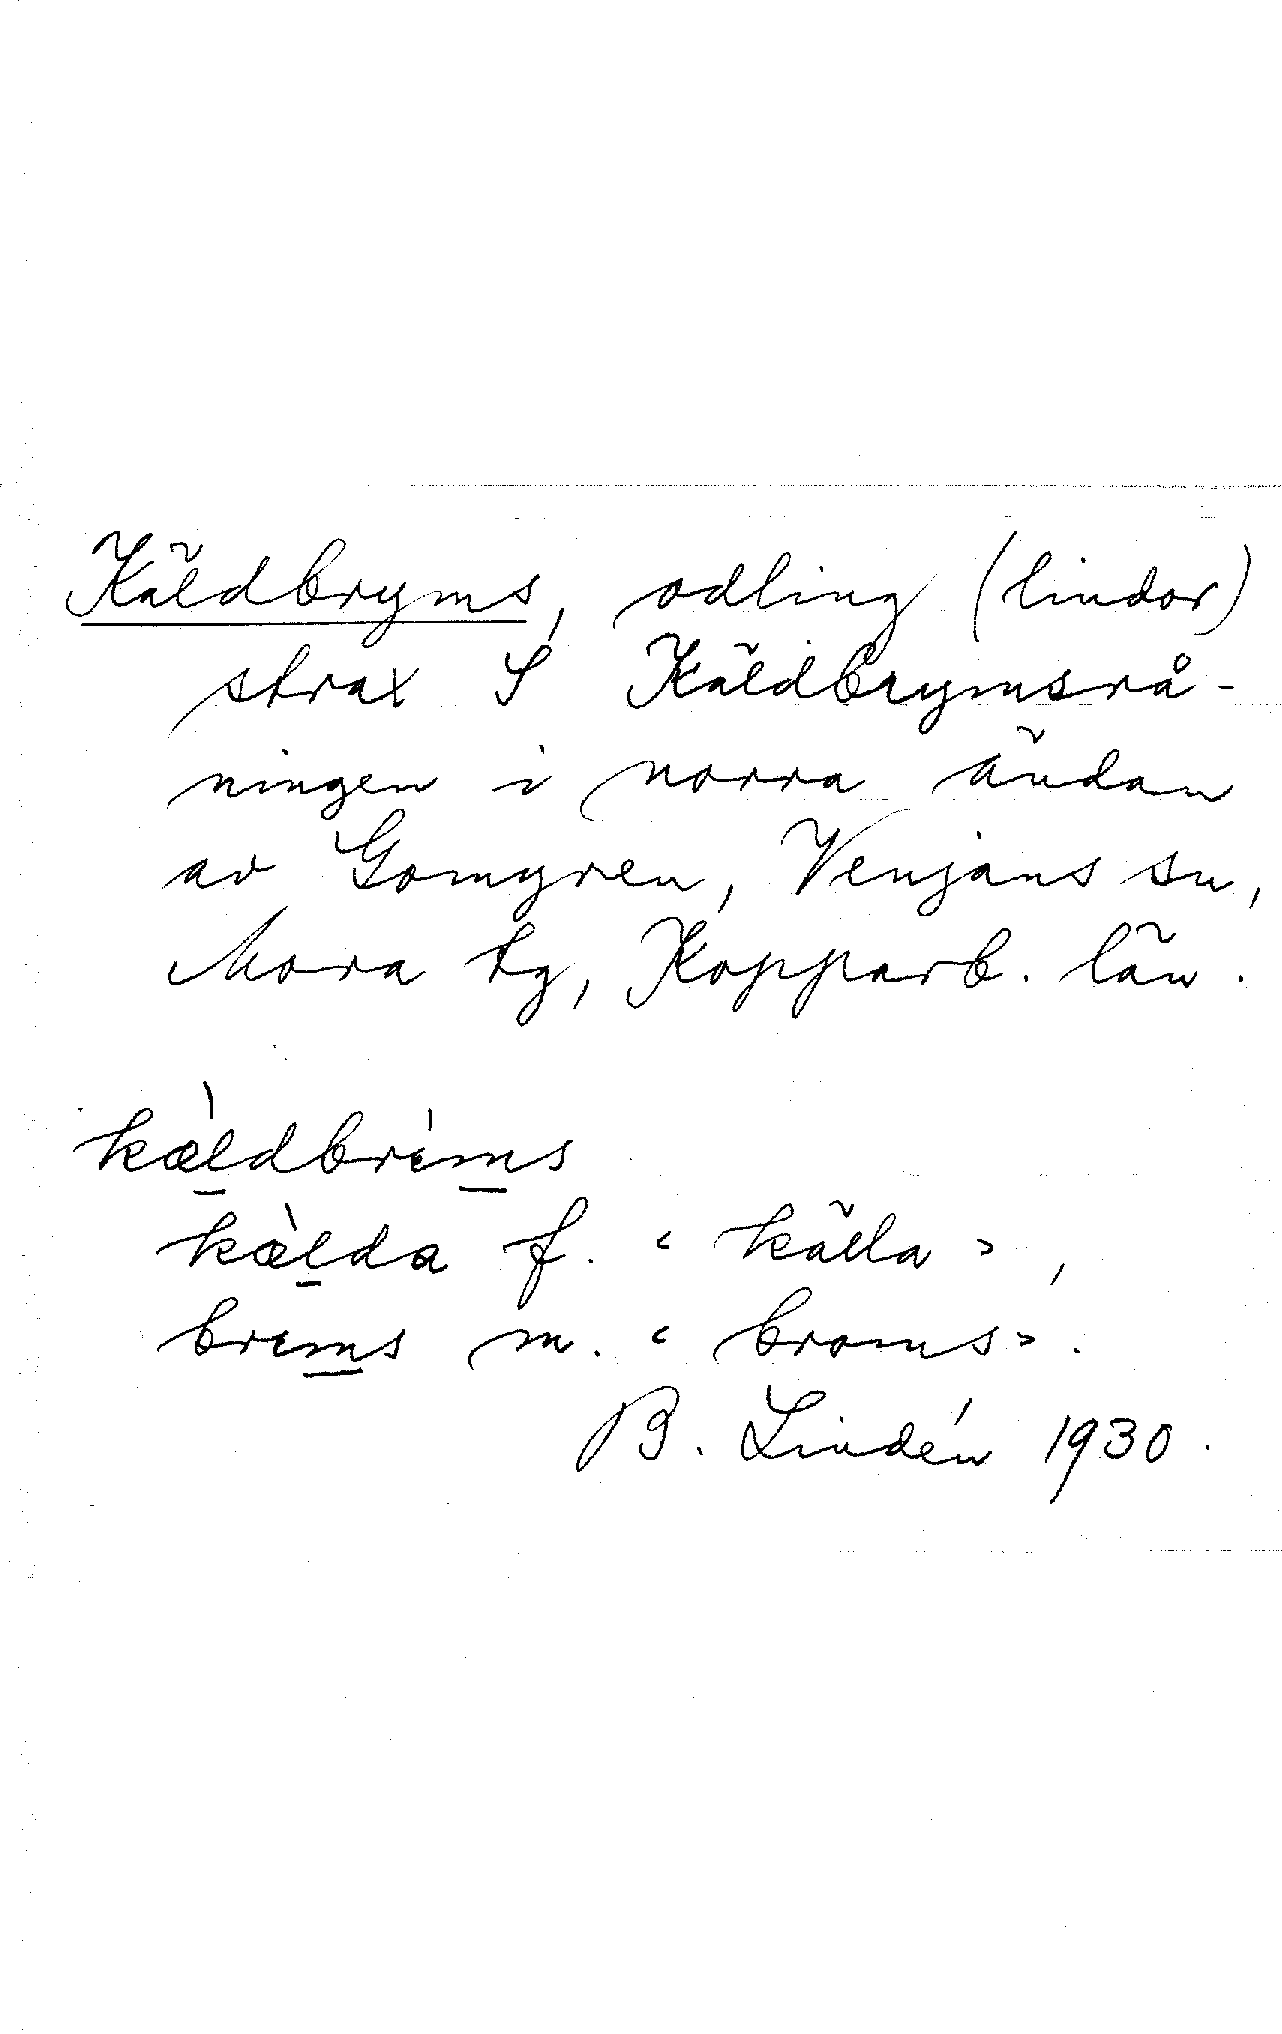 Käldbryms, odling (lindor)
strax S Käldbrymsrå-
ningen i norra ändan
av Gomyren, Venjans sn,
Mora tg, Kopparb. län.
kæ̀ldbrìms
kæ̀lda f. ‹ källa ›,
brims m. ‹ broms ›.
B. Lindén 1930.